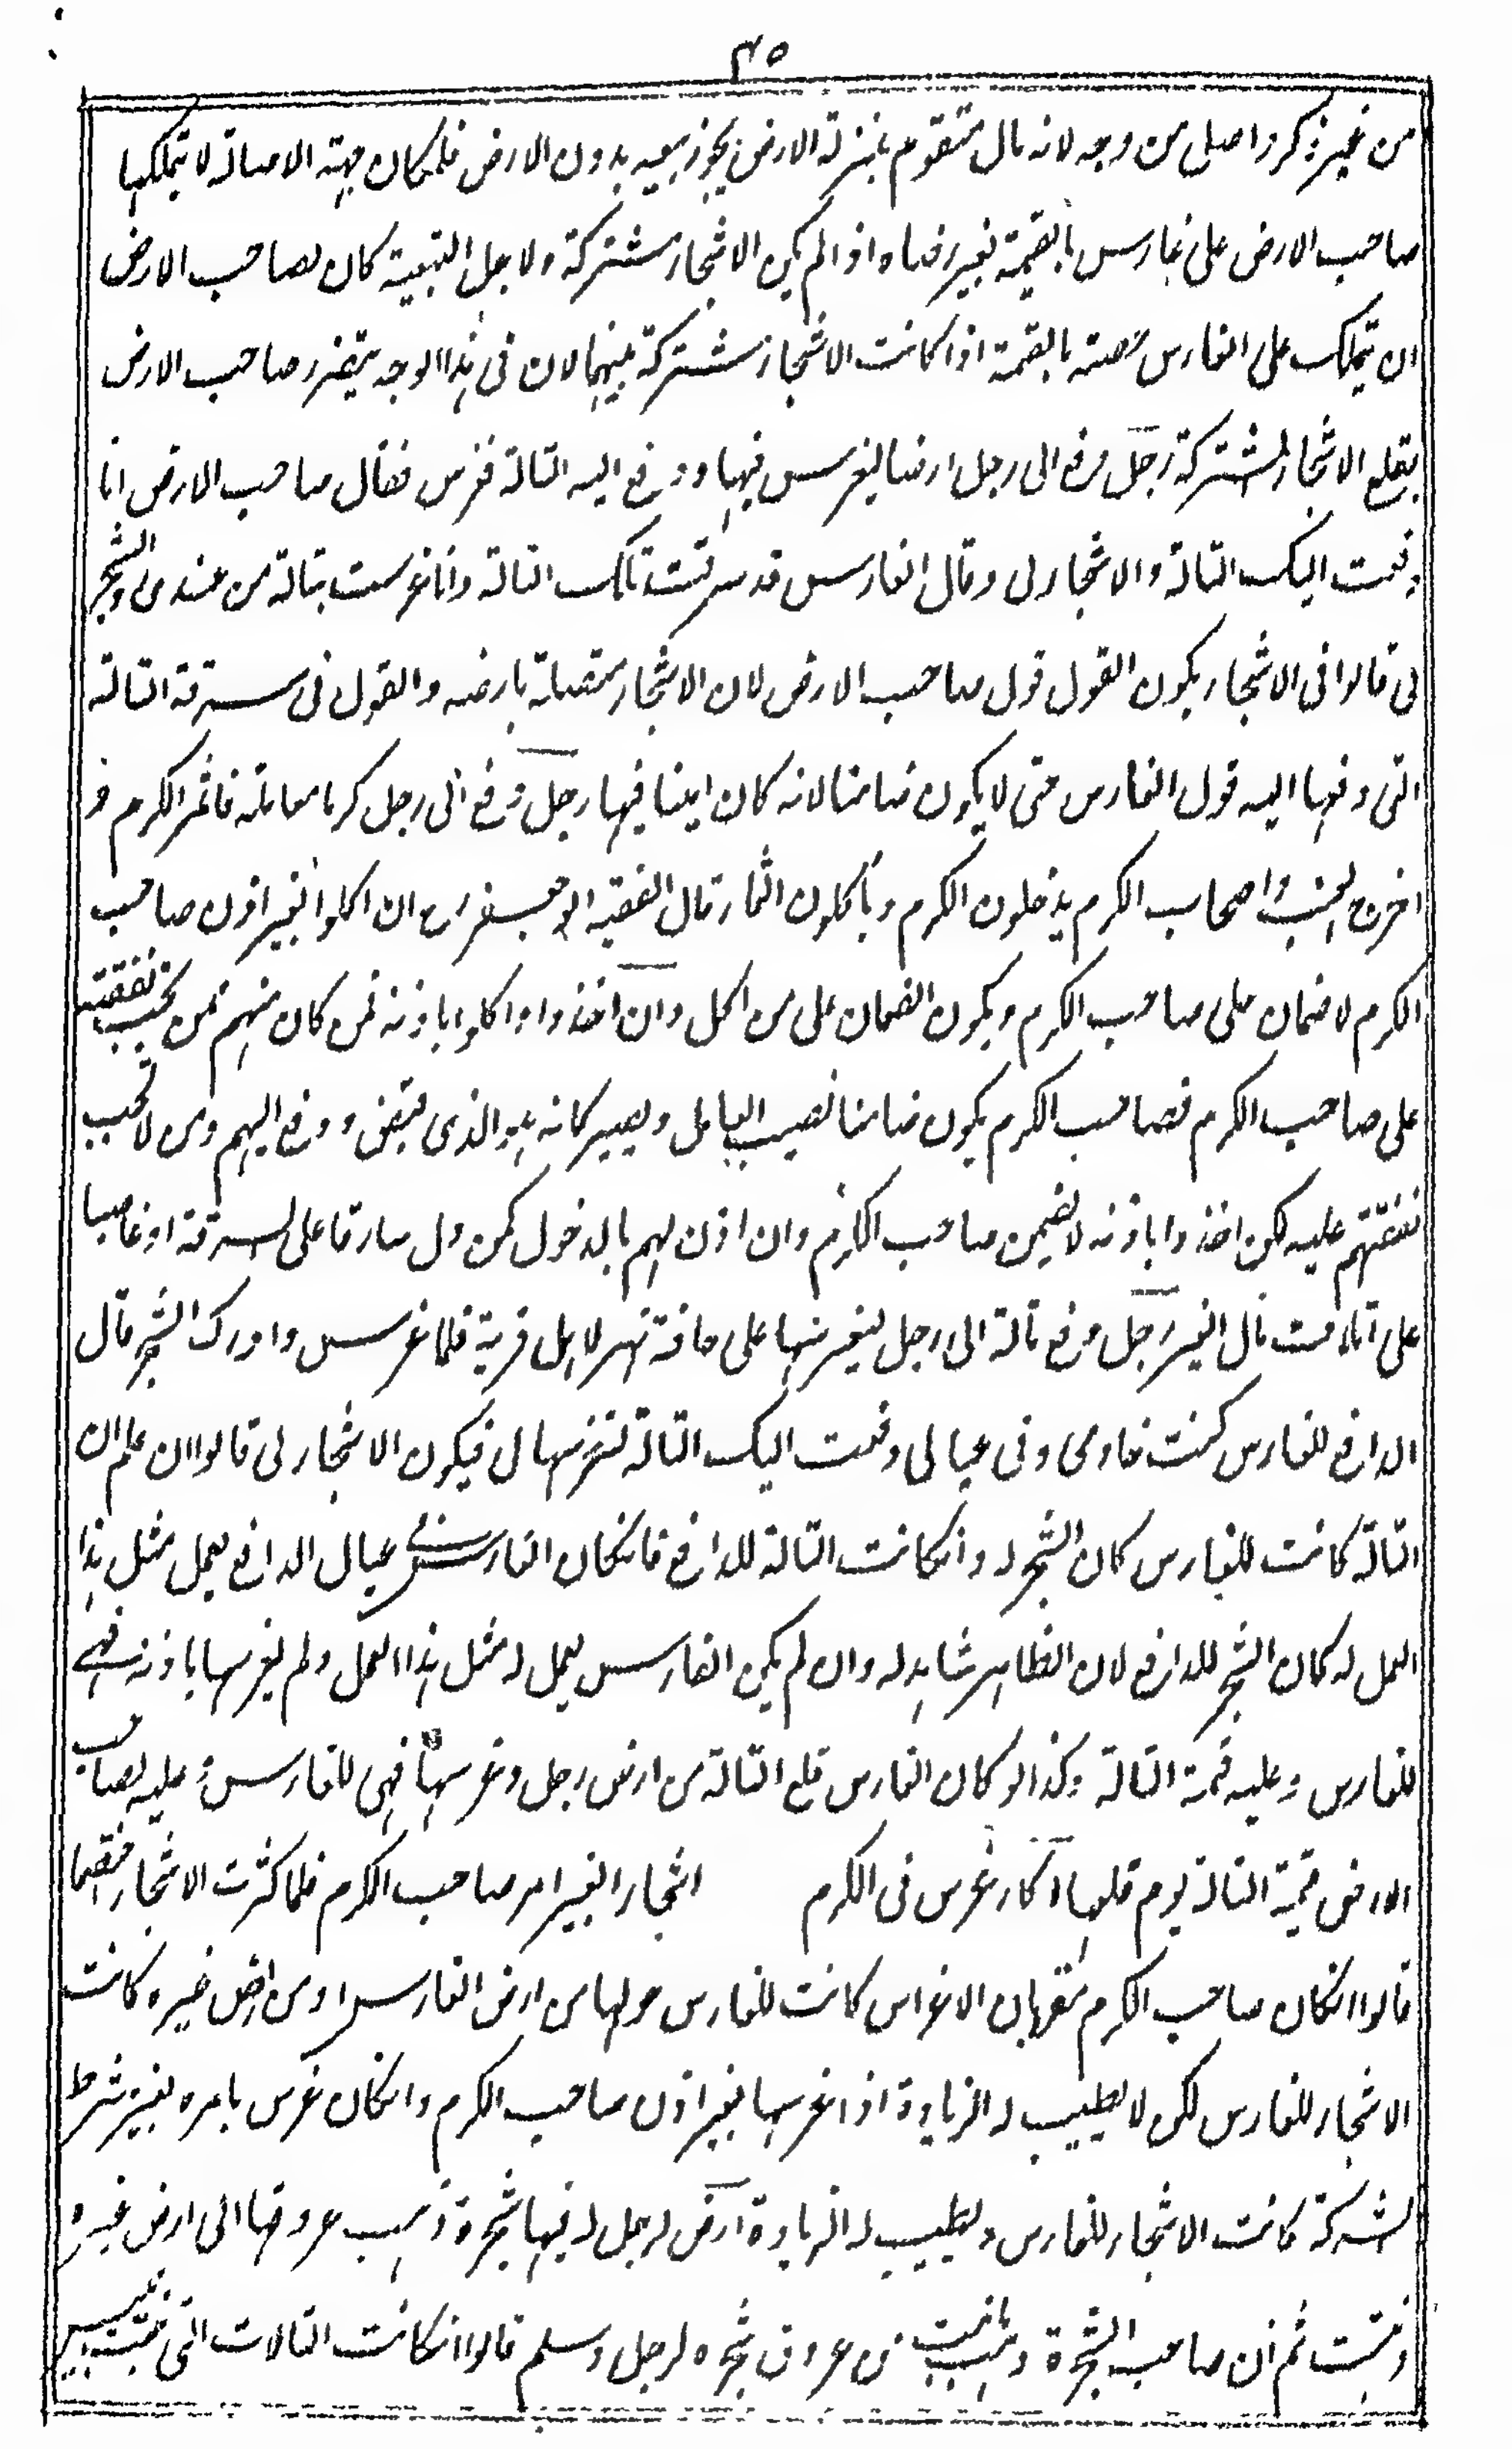 ٣٥
من غير ذكر واصل من وجه لانه مال متقوم بمنزلة الارض يجوز بيعه بدون الارض فلمكان جهته الاصالة لا يتملكها
صاحب الارض على غارس بالقيمة بغير رضاه اذا لم يكن الاشجار مشتركة ولاجل التبعية كان لصاحب الارض
ان يتملك على الغارس حصته بالقيمة اذا كانت الاشجار مشتركة بينهما لان فى هذا الوجه يتضرر صاحب الارض
بقلع الاشجار المشتركة رجل دفع الى رجل ارضا ليغرس فيها ودفع اليه التالة فغرس فقال صاحب الارض انا
دفعت اليك التالة والاشجار لى وقال الغارس قد سرقت تلك التالة وانا غرست بتالة من عندى والشجر
لى قالوا فى الاشجار يكون القول قول صاحب الارض لان الاشجار متصلة بارضه والقول فى سرقة التالة
التى دفعها اليه قول الغارس حتى لا يكون ضامنا لانه كان امينا فيها رجل دفع الى رجل كرما معاملة فاثمر الكرم و
اخرج العنب واصحاب الكرم يدخلون الكرم وياكلون الثمار قال الفقيه ابو جعفر رح ان اكلوا بغير اذن صاحب
الكرم لا ضمان على صاحب الكرم ويكون الضمان على من اكل وان اخذوا واكلوا باذنه فمن كان منهم ممن تجب نفقته
على صاحب الكرم فصاحب الكرم يكون ضامنا نصيب العامل ويصير كانه هو الذى قبض ودفع اليهم ومن لا تجب
نفقتهم عليه لكن اخذوا باذنه لا يضمن صاحب الكرم وان اذن لهم بالدخول كمن دل سارقا على السرقة او غاصبا
على اتلاف مال الغير رجل دفع تالة الى رجل ليغرسها على حافة نهر لاهل قرية فلما غرس وادرك الشجر قال
الدافع للغارس كنت خادمى وفى عيالى دفعت اليك التالة لتغرسها لى فيكون الاشجار لى قالوا ان علم ان
التالة كانت للغارس كان الشجر له وانكانت التالة للدافع فانكان الغارس فى عيال الدافع يعمل مثل هذا
العمل له كان الشجر للدافع لان الظاهر شاهد له وان لم يكن الغارس يعمل له مثل هذا العمل ولم يغرسها باذنه فهى
للغارس وعليه قيمة التالة وكذا لو كان الغارس قلع التالة من ارض رجل وغرسها فهى للغارس وعليه لصاحب
الارض قيمة التالة يوم قلعها اكار غرس فى الكرم اشجارا بغير امر صاحب الكرم فلما كثرت الاشجار اختصما
قالوا انكان صاحب الكرم مقرا بان الاغراس كانت للغارس حولها من ارض الغارس او من ارض غيره كانت
الاشجار للغارس لكن لا يطيب له الزيادة اذا غرسها بغير اذن صاحب الكرم وانكان غرس بامره بغير شرط
الشركة كانت الاشجار للغارس ويطيب له الزيادة ارض لرجل له فيها شجرة ذهب عروقها الى ارض غيره
ونبتت ثم ان صاحب الشجرة وهب ما نبت من عروق شجره لرجل وسلم قالوا انكانت التالات التى نبتت تيبس